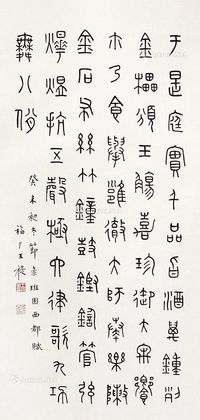 于是庭實千品旨酒萬鍾列
金罍頒玉觴嘉珍御大牢饗
尒乃食舉雝徹大師奏樂陳
金石布絲竹鐘鼓鏗鍧管弦
燁煜抗五聲極六律歌九功
舞八佾
癸未冬節彔班固西都賦
福厂王禔